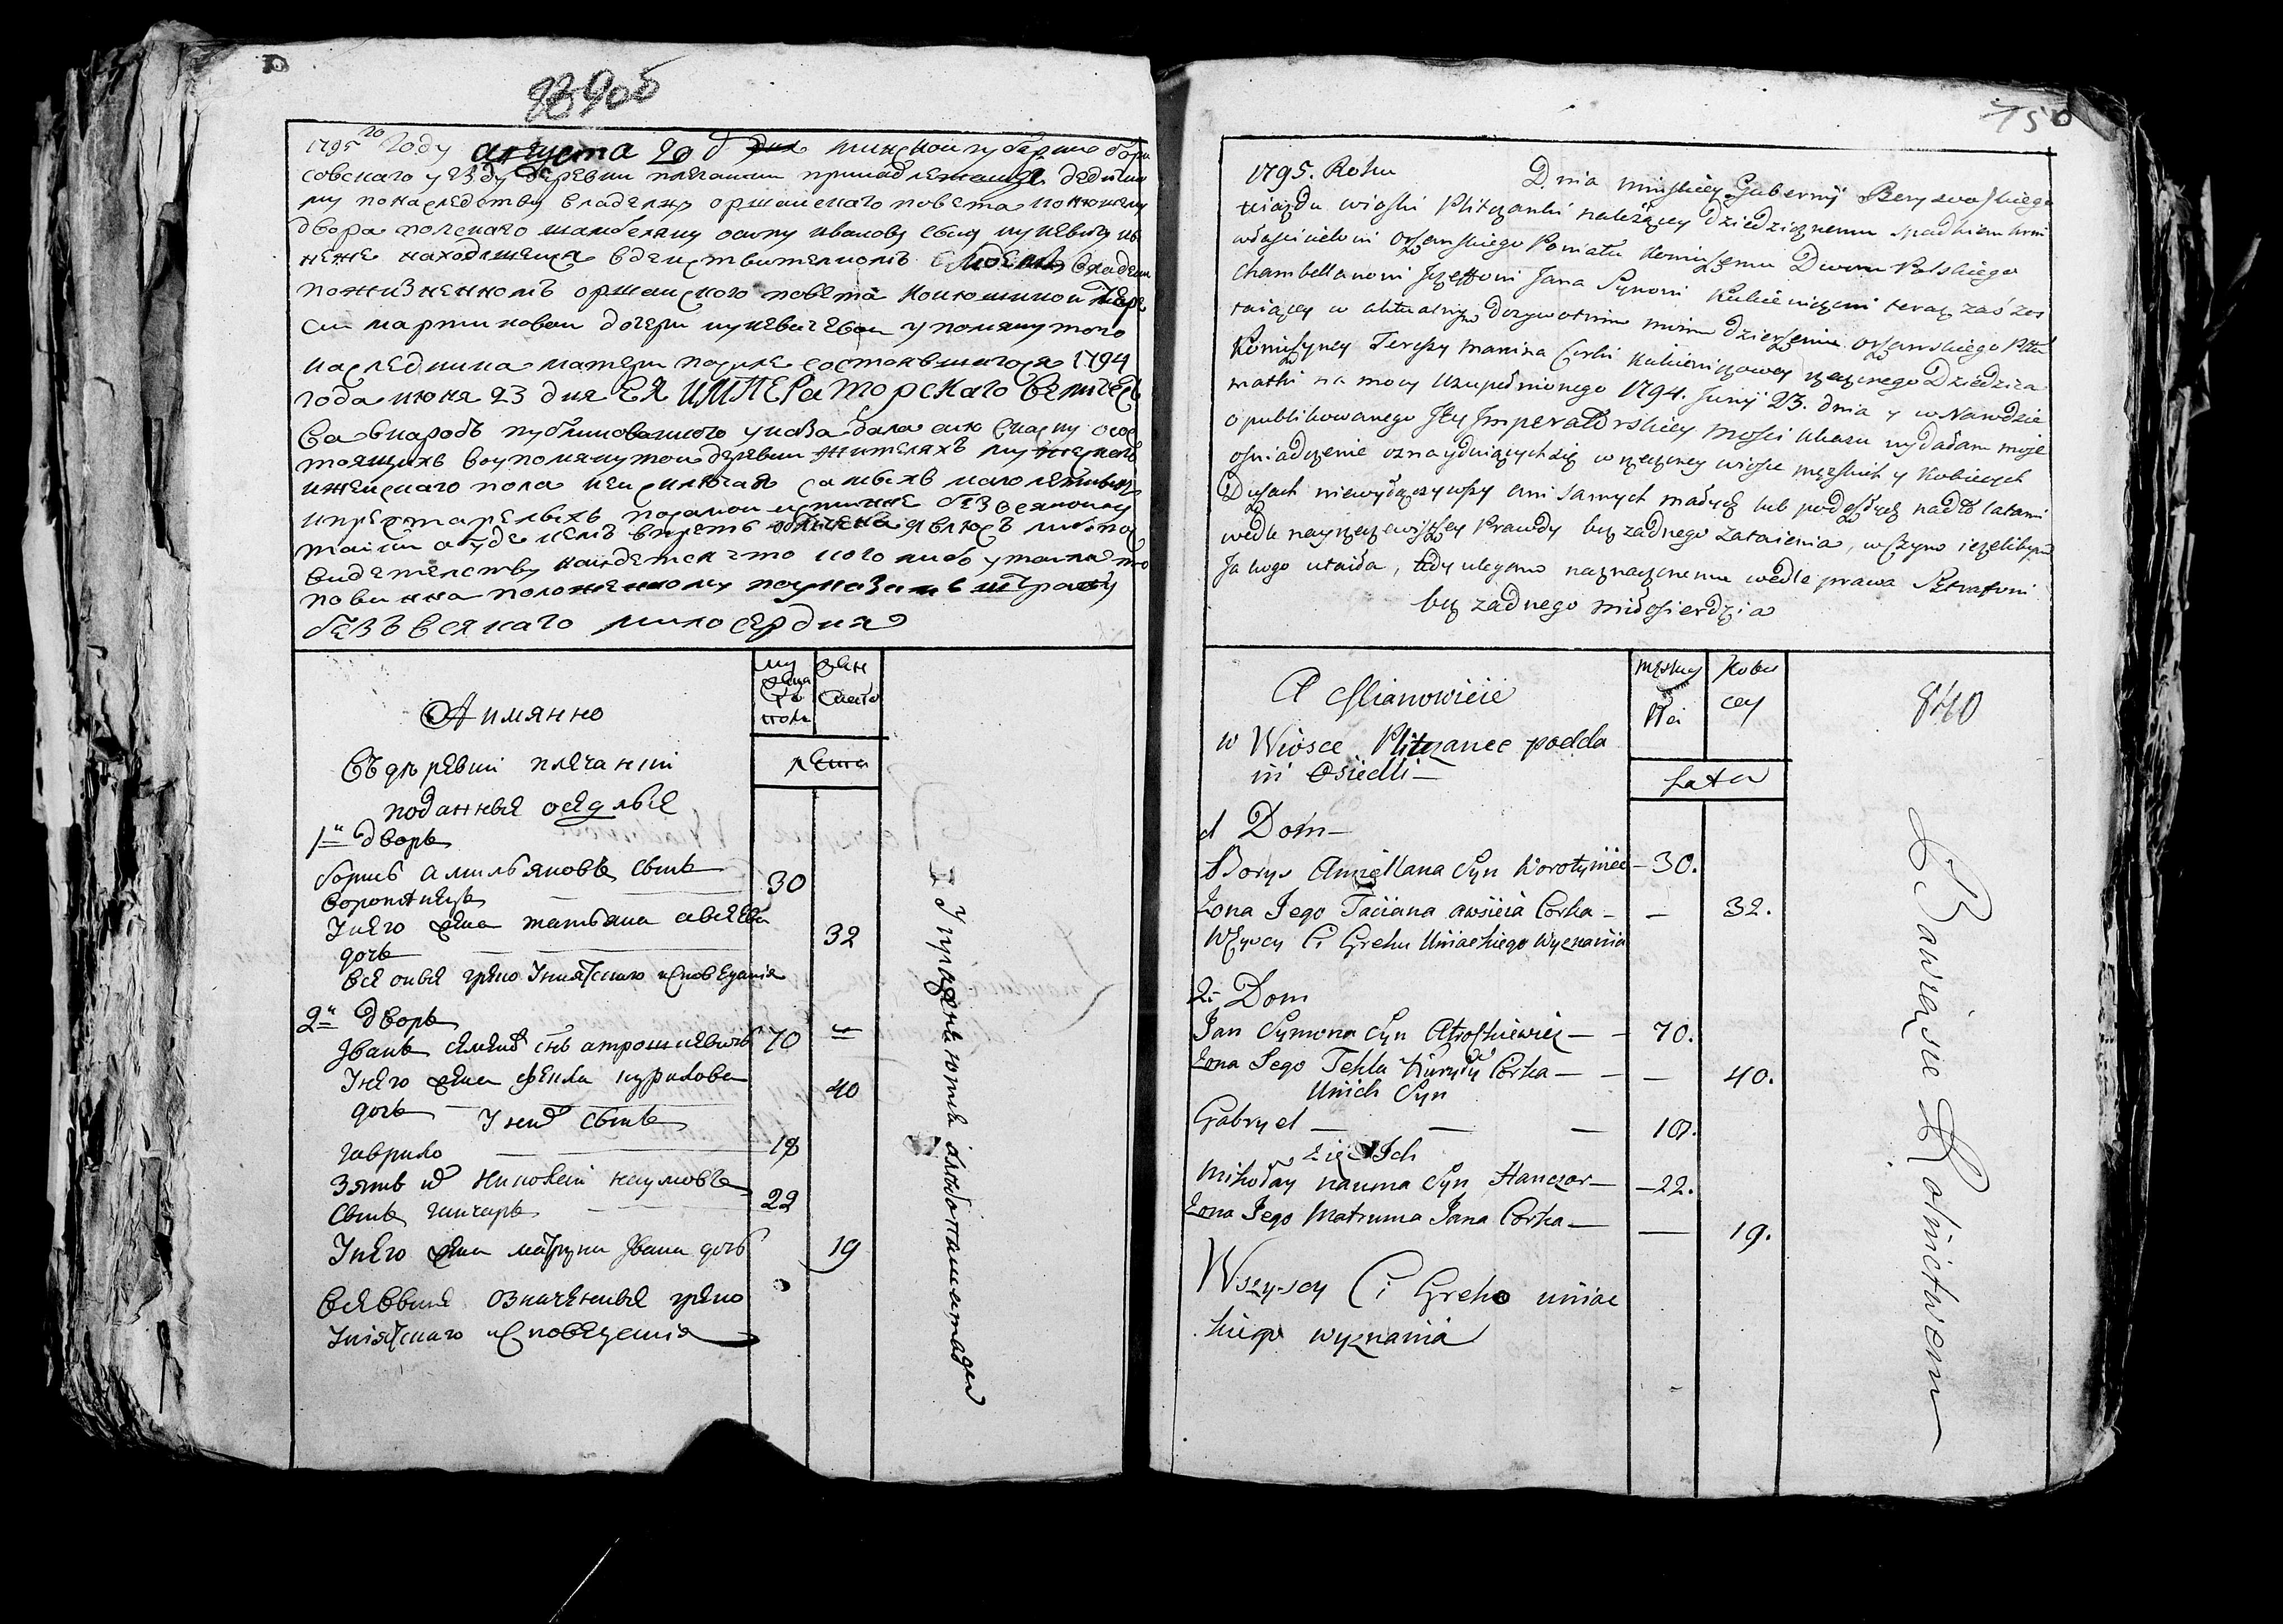 1795го Году августа 20 д дня минской губернии Бори
совского уезду деревни плечанки принадлежащей дедичн
му понаследству владелцу оршанского повета конюшему
двора полского шамбеляну осипу иванову сыну
неже находящеися вдействительномъ владени
пожизненномъ оршанского повета конюшинои Тере
си мартиновои дочери упомянутого
наследника матери после состоявшагося 1794
года июня 23 дня ЕЯ ИМПЕРаТОРСКаГО Величес
Ва внародъ публикованного указа дала сию скаску осос
тоящихъ воупомянутои деревни жителяхъ мужеского
иженского пола неисключая самыхъ малолетныхъ
ипрестарелыхъ посамои истинне безвсякои у
таики абуде впреть обличена явлюсь либо по с
видетелству наидется что кого либо утаила то
повинна положенному поуказамъ штрафу
безъ всякаго милосердия
Аимянно
му
жеска
го
пола
жен
скаго
Съдеревни плечанки
поданныя оседлыя
лета
1й дворъ
борисъ амильяновъ сынъ
воротынецъ 30
Унего жена татьяна авсеева
дочь 32
все оныя греко униятскаго исповедания
2й дворъ
Иванъ семенов снъ атрошкевичь 70
Унего жена фекла курилова
дочь 40
Уних сынъ
гаврило 18
Зять их николай наумовъ
сынъ ганчаръ 22
Унего жена матруна Ивана дочь 19
Все выше означенныя греко
Униятскаго исповедания
Упражняются хлебопашеством
150
1795. Roku Dnia mińskiey Gubernij Borysowskiego
uiazdu wioski Plitczanki należącey dziedzicznemu spadkiem
właścicielowi orszanskiego Powiatu Koniuszemu Dworu Polskiego
Chambellanowi Jozeffowi Jana Synowi Kukiewiczowi teraz zaś zos
taiącey w aktualnym dożywotnim mnim dzierżeniu orszanskiego Pttu
Koniuszyney Teressy marcina Corki Kukiewiczowey rzeczonego Dziedzica
matki na mocy uzupełnionego 1794. Junij 23. dnia y w Narodzie
opublikowanego Jey Imperatorskiey Mości Ukazu wydałam moje
oświadczenie oznayduiących się w rzeczoney wiosce męzkich y Kobiecych
Duszach niewyłączywszy ani samych małych lub podeszłych nadto latami
wedle nayrzeczewistszey Prawdy bez żadnego zataienia, wczym ieżelibym
Ja kogo utaiła, tedy ulegam naznaczonemu wedle prawa Sztrafowi
bez zadnego miłosierdzia
A Mianowicie
męskiey
Płci
Kobie
cey
840
w Wiosce Plitczance podda
ni Osiedli
Lata
1 Dom
Borys Amiellana Syn Worotyniec 30.
Zona Jego Taciana awsieia Corka 32.
Wszyscy Ci Greku Uniackiego Wyznania
2i Dom
Jan Symona Syn Atroszkiewicz 70.
Zona Jego Tekla Kuryły Corka 40.
Unich Syn
Gabryel 18.
zięć Ich
Mikołay nauma Syn Hanczar 22.
Zona Jego Matruna Jana Corka 19.
Wszyscy Ci Greko uniac
kiego wyznania
Bawiąsie Rolnictwem